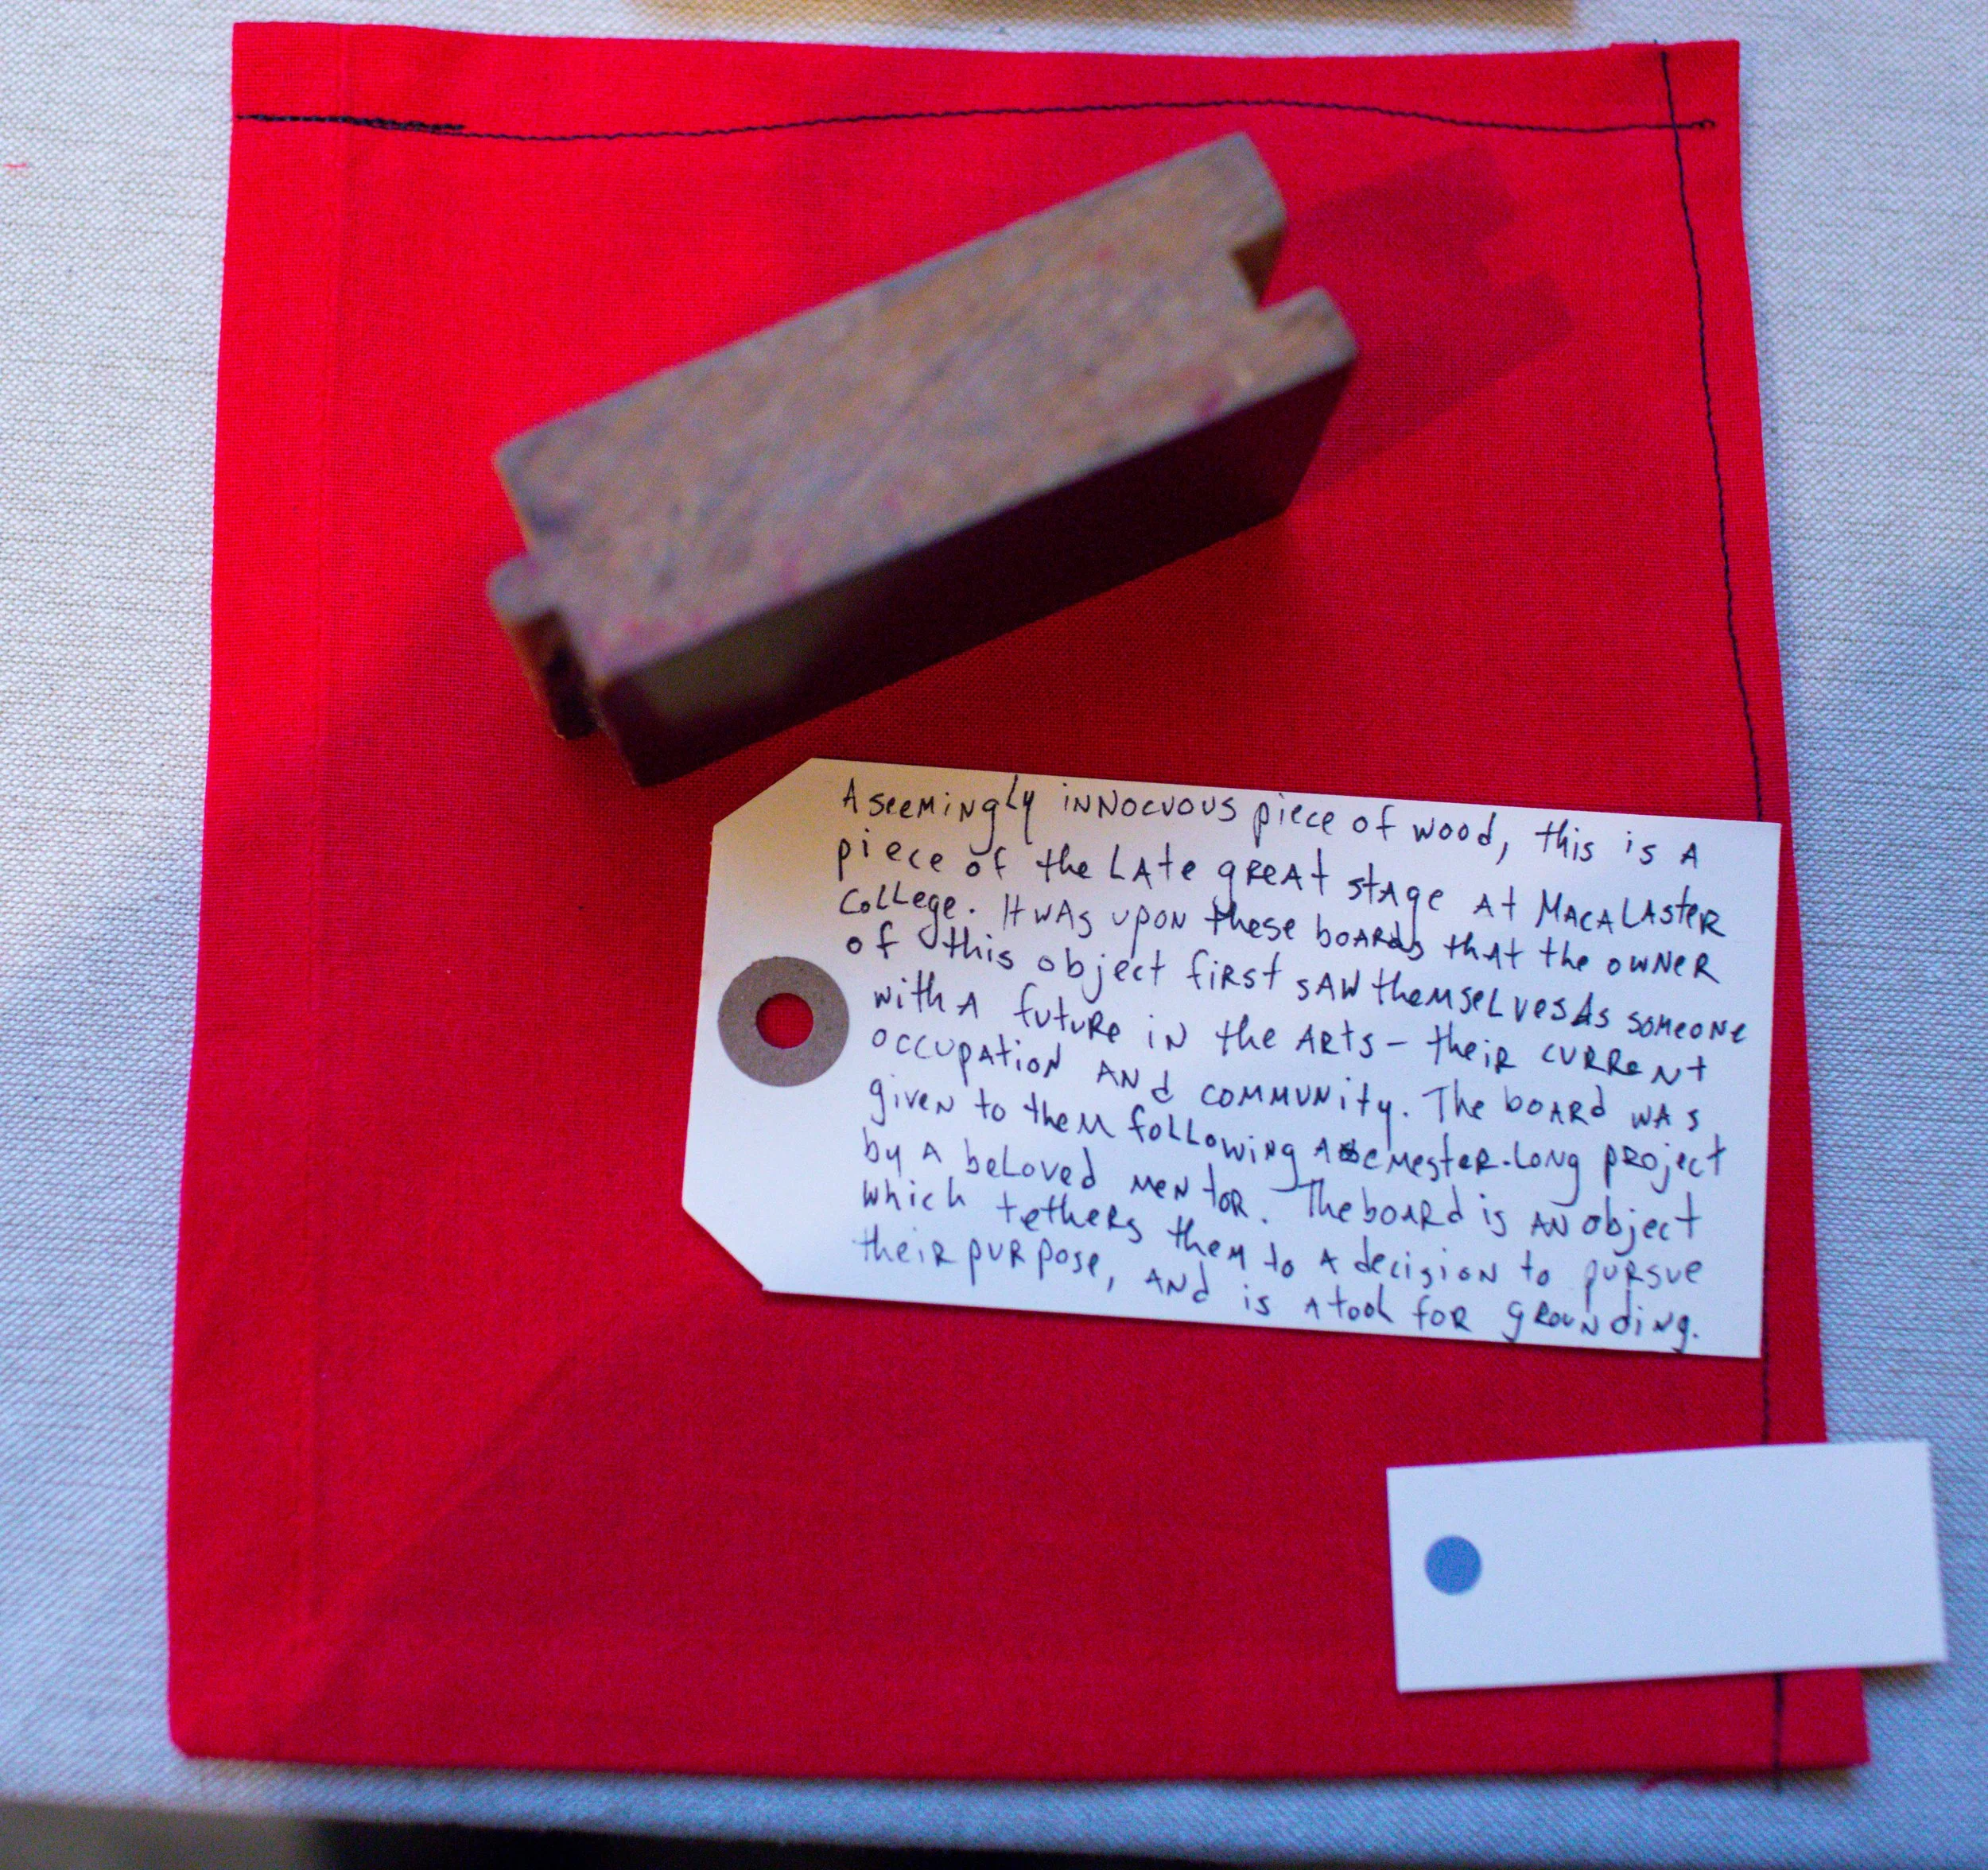 A seemingly innocuous piece of wood, this is a
piece of the late great stage at Macalaster
College. It was upon these boards that the owner
of this object first saw themselves as someone
with a future in the arts - their current
occupation and community. The board was
given to them following a semester-long project
by a beloved mentor. The board is an object
which tethers them to a decision to pursue
their purpose, and is a tool for grounding.